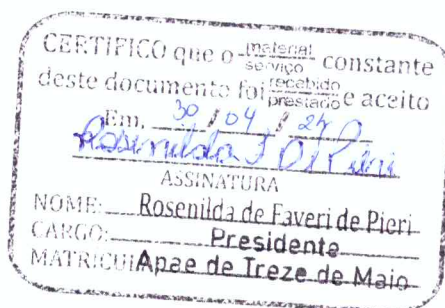 CERTIFICO que o material serviço constante
deste documento foi recebido prestado e aceito
Em, 30 / 04 / 24
Rosenilda F De Pieri
ASSINATURA
NOME: Rosenilda de Faveri de Pieri
CARGO: Presidente
MATRICUL Apae de Treze de Maio